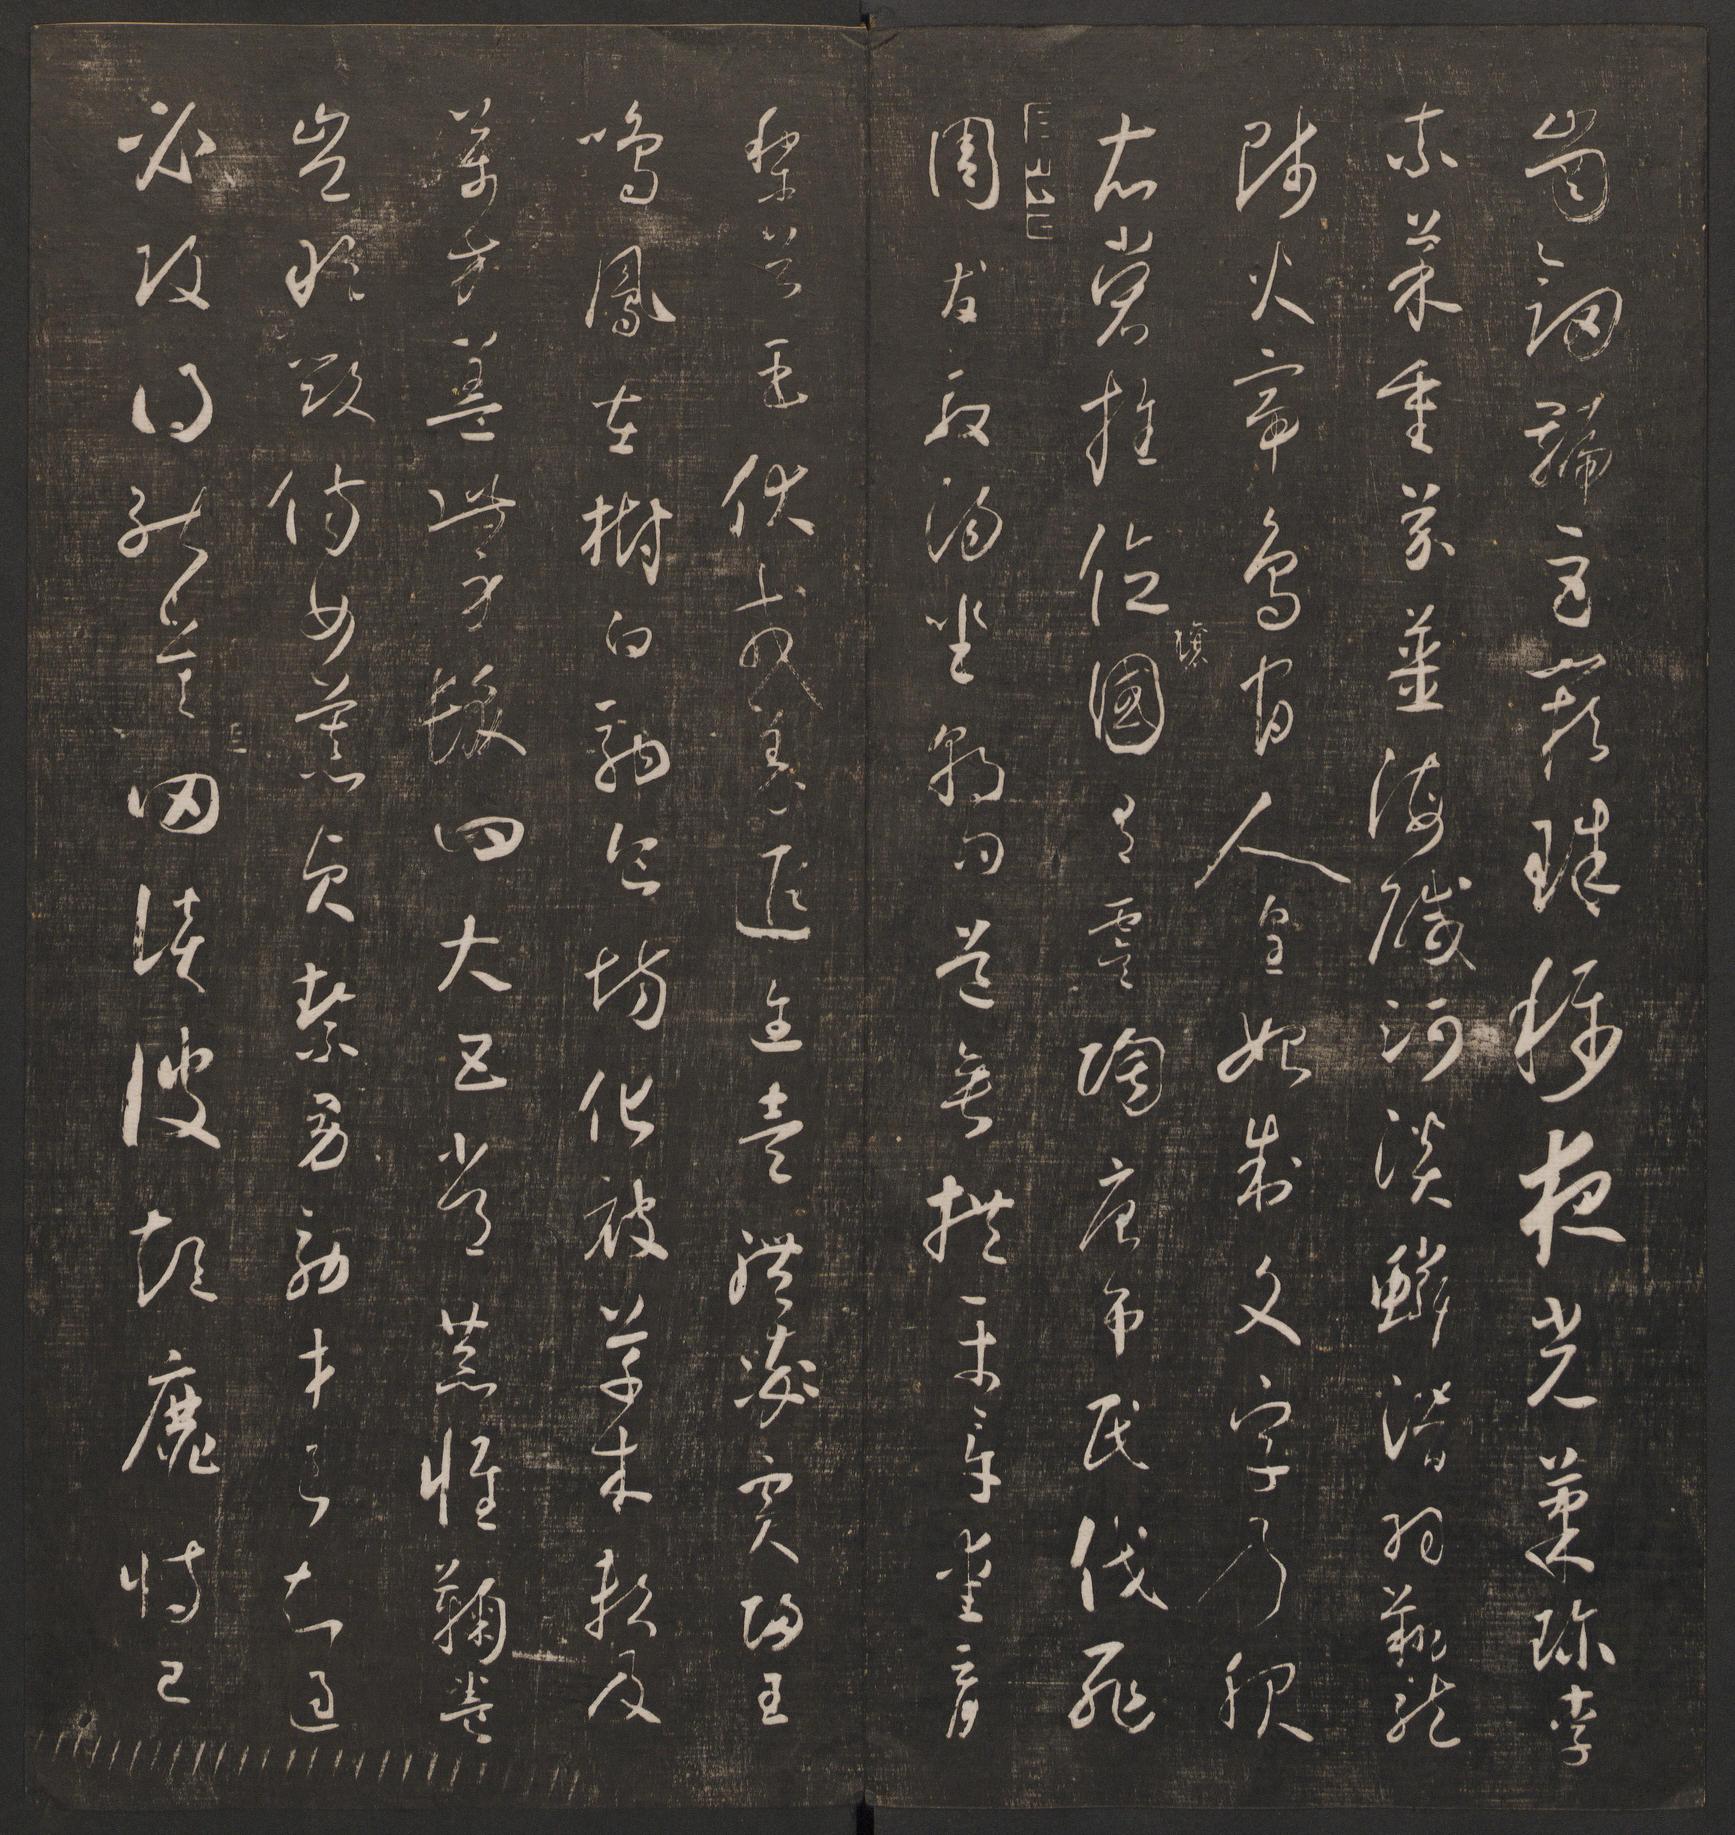 崗劍號巨闕珠稱夜光菓珍李
柰菜重芥薑海鹹河淡鱗潛羽翔龍
師火帝鳥官人皇始制文字乃服
衣裳推位讓國有虞陶唐弔民伐罪
周發殷湯坐朝問道垂拱平章愛育
黎首臣伏戎羌遐邇壹體率賓歸王
鳴鳳在樹白駒食場化被草木賴及
萬方蓋此身髮四大五常恭惟鞠養
豈敢毀傷女慕貞絜男效才良知過
必改得能莫罔談彼短靡恃己